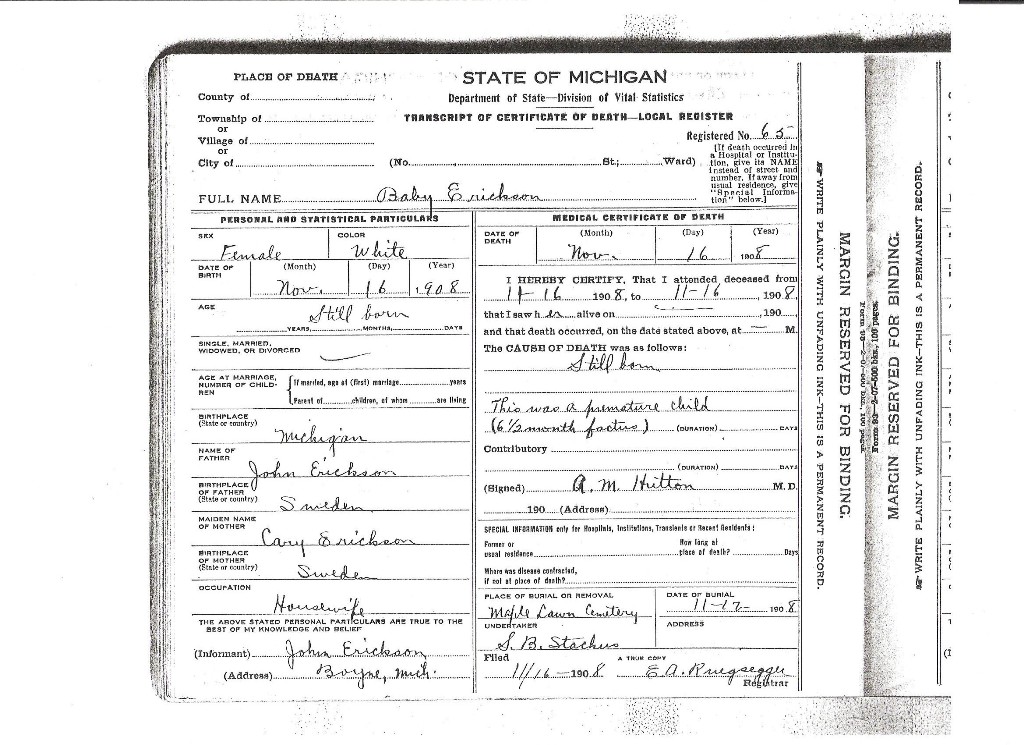 PLACE OF DEATH
County of
Township of
or
Village of
or
City of
STATE OF MICHIGAN
Department of State—Division of Vital Statistics
TRANSCRIPT OF CERTIFICATE OF DEATH—LOCAL REGISTER
Registered No. 65
(No. St.; Ward)
[If death occurred in
a Hospital or Institu-
tion, give its NAME
instead of street and
number. If away from
usual residence, give
"Special Informa-
tion" below.]
FULL NAME Baby Erickson
PERSONAL AND STATISTICAL PARTICULARS
SEX
Female
COLOR
White
DATE OF
BIRTH
(Month) (Day) (Year)
Nov. 16 1908
AGE
Still born
YEARS, MONTHS, DAYS
SINGLE, MARRIED,
WIDOWED, OR DIVORCED
AGE AT MARRIAGE,
NUMBER OF CHILD-
REN
If married, age at (first) marriage years
Parent of children, of whom are living
BIRTHPLACE
(State or country)
Michigan
NAME OF
FATHER
John Erickson
BIRTHPLACE
OF FATHER
(State or country)
Sweden
MAIDEN NAME
OF MOTHER
Cary Erickson
BIRTHPLACE
OF MOTHER
(State or country)
Sweden
OCCUPATION
Housewife
THE ABOVE STATED PERSONAL PARTICULARS ARE TRUE TO THE
BEST OF MY KNOWLEDGE AND BELIEF
(Informant) John Erickson
(Address) Boyne, Mich.
MEDICAL CERTIFICATE OF DEATH
DATE OF
DEATH
(Month) (Day) (Year)
Nov. 16 1908
I HEREBY CERTIFY, That I attended deceased from
11-16 1908, to 11-16, 1908,
that I saw her alive on , 190
and that death occurred, on the date stated above, at — M.
The CAUSE OF DEATH was as follows:
Still born
This was a premature child
(6 1/2 month factus) (DURATION) DAYS
Contributory
(DURATION) DAYS
(Signed) A. M. Hutton M.D.
190 (Address)
SPECIAL INFORMATION only for Hospitals, Institutions, Transients or Recent Residents:
Former or
usual residence
How long at
place of death? Days
Where was disease contracted,
if not at place of death?
PLACE OF BURIAL OR REMOVAL
Maple Lawn Cemetery
DATE OF BURIAL
11-17- 1908
UNDERTAKER
S. B. Stackus
ADDRESS
Filed
11/16 -1908
A TRUE COPY
E. A. Ruegsegger
Registrar
WRITE PLAINLY WITH UNFADING INK—THIS IS A PERMANENT RECORD.
MARGIN RESERVED FOR BINDING.
MARGIN RESERVED FOR BINDING.
WRITE PLAINLY WITH UNFADING INK—THIS IS A PERMANENT RECORD.